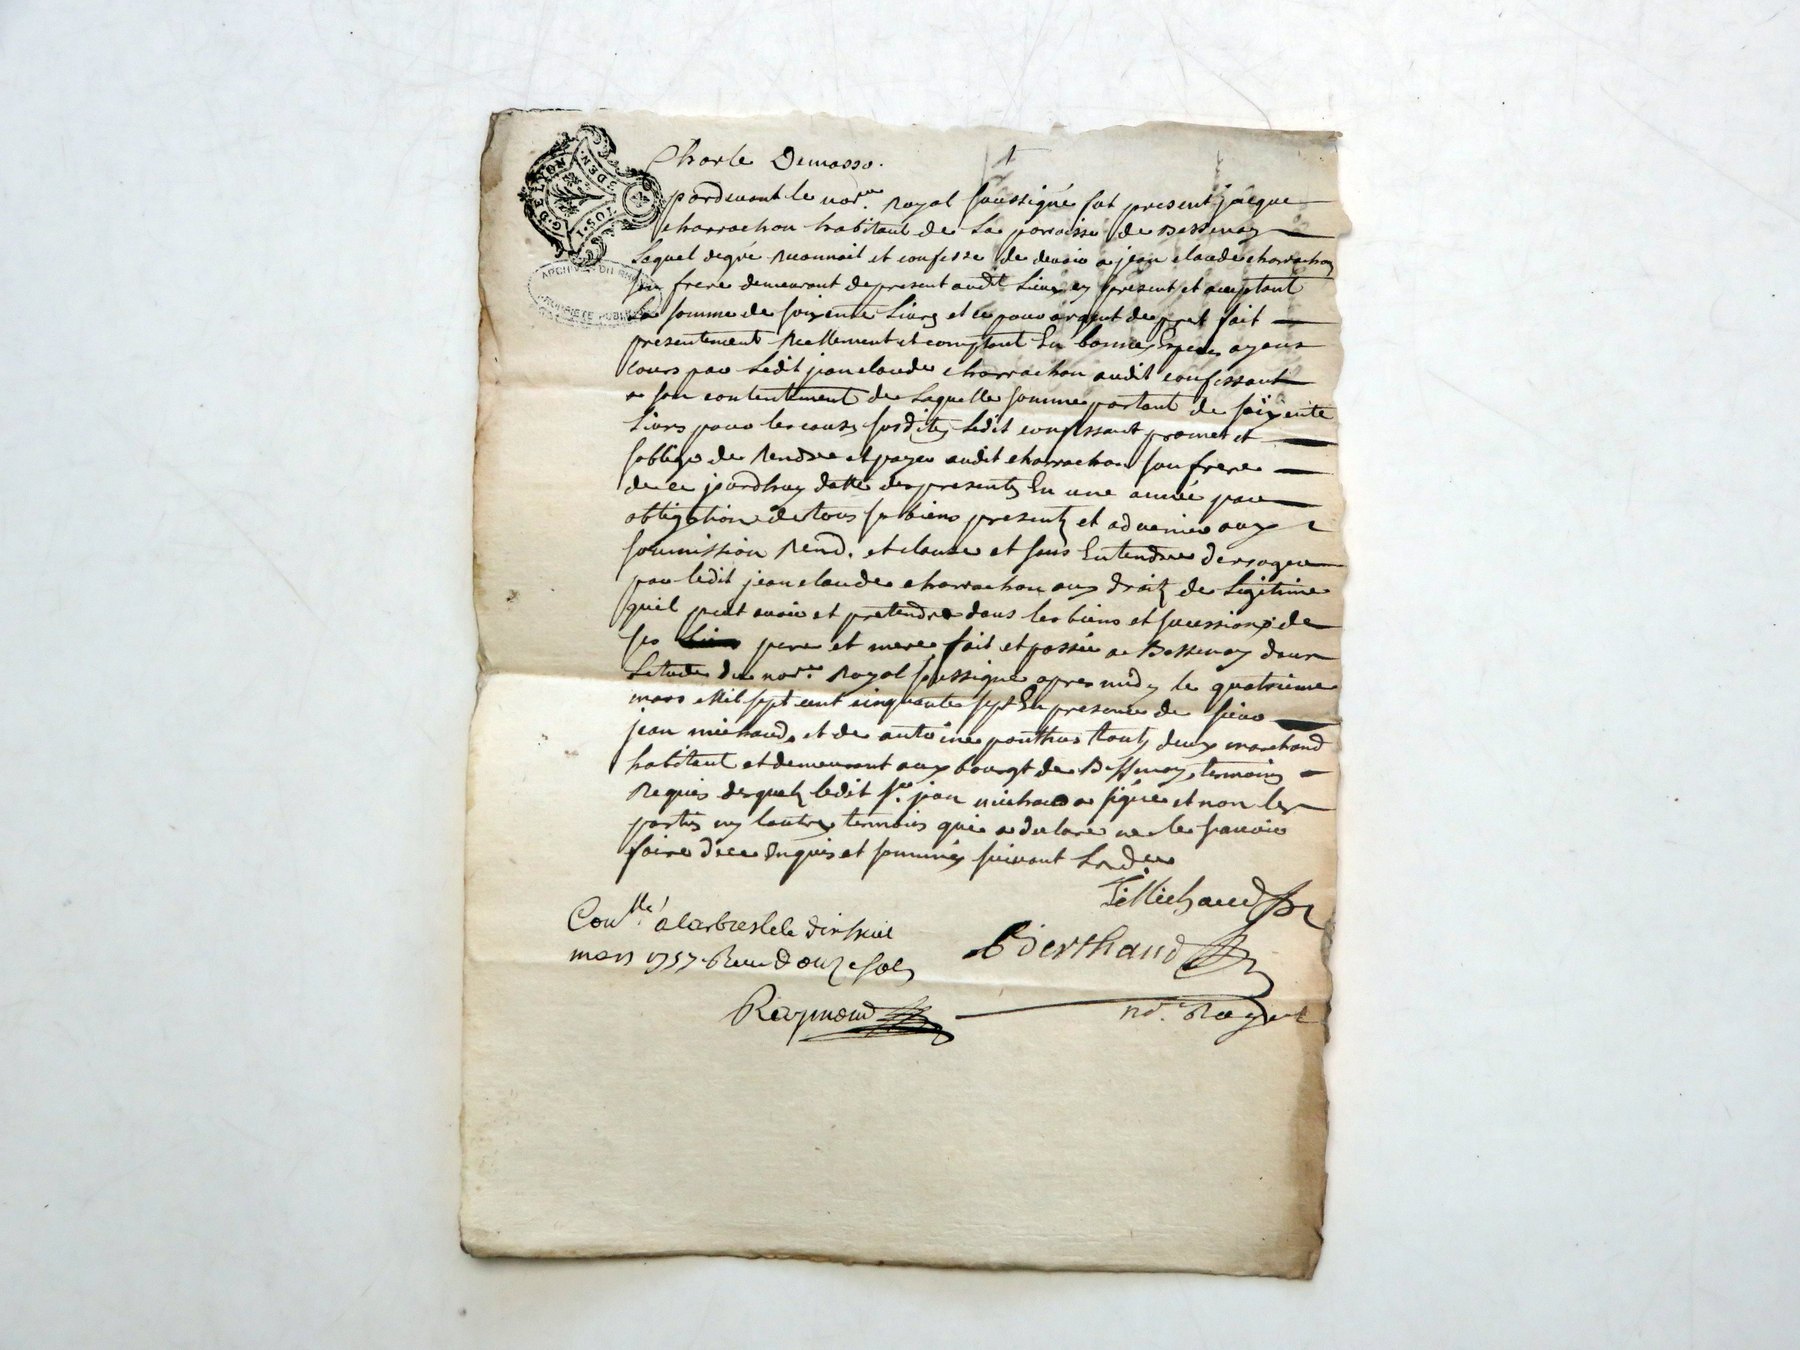 G. DE LYON
1. SOL
DEN.
ARCHIVES DU RHÔNE
PROPRIÉTÉ PUBLIQUE
Charle Demasso.
pardevant le nore. Royal soussigné fut present jacque
charrachon habitant de la parroisse de Bessenay
Lequel degré reconnait et confesse de devoir a jean claude charrachon
son frere demeurant depresent audit Lieu icy present et aceptant
La somme de soixente Livres et ce pour argent de pret fait
presentement reellement et comptant En bonnes Especes ayans
cours par Ledit jean claude charrachon audit confessant
a son contentement de Laquelle somme partant de soixente
Livres pour les causes susdites Ledit confessant promet et
soblige de Rendre et payer audit charrachon son frere
de ce jourdhuy datte des presentes En une année par
obligation de tous ses biens presents et advenir aux
soumission Rend. et clause et sans Entendre deroger
par ledit jean claude charrachon aux droits de Legitime
quil peut avoir et pretendre dans les biens et sucessions de
ses pere et mere fait et passée a Bessenay dans
Letude du nore. Royal soussigné apres midy le quatrieme
mars Mil sept cent cinquante sept En presence de sieur
jean michaud et de antoine ponthus touts deux marchand
habitant et demeurant aux bourgt de Bessenay temoins
Requis desquels ledit sr. jean michaud a signé et non les
parties ny lautre temoins qui a declaré ne le sauvoir
faire de ce Enquis et sommés suivant Lorde.
Michaud
Conllé a Larbresle le dix huit
Berthaud
mars 1757. Reçu douze sols
Raymond
nore. Royal